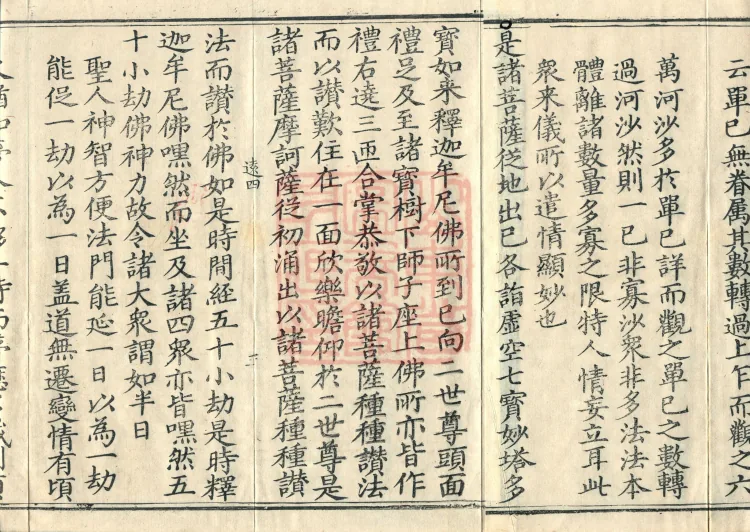 云單已無眷属其數轉過上乍而觀之六
萬河沙多扵單已詳而觀之單已之數轉
過河沙然則一已非寡沙衆非多法法本
體離諸數量多寡之限特人情妄立耳此
衆来儀所以遣情顯妙也
是諸菩薩從地出已各詣虛空七寶妙塔多
寶如来釋迦牟尼佛所到已向二世尊頭面
禮足及至諸寶樹下師子座上佛所亦皆作
禮右遶三匝合掌恭敬以諸菩薩種種讃法
而以讃歎住在一面欣樂瞻仰扵二世尊是
諸菩薩摩訶薩從初涌出以諸菩薩種種讃
遠四
法而讃扵佛如是時間經五十小劫是時釋
迦牟尼佛嘿然而坐及諸四衆亦皆嘿然五
十小劫佛神力故令諸大衆謂如半日
聖人神智方便法門能延一日以為一劫
能促一劫以為一日盖道無遷變情有頃